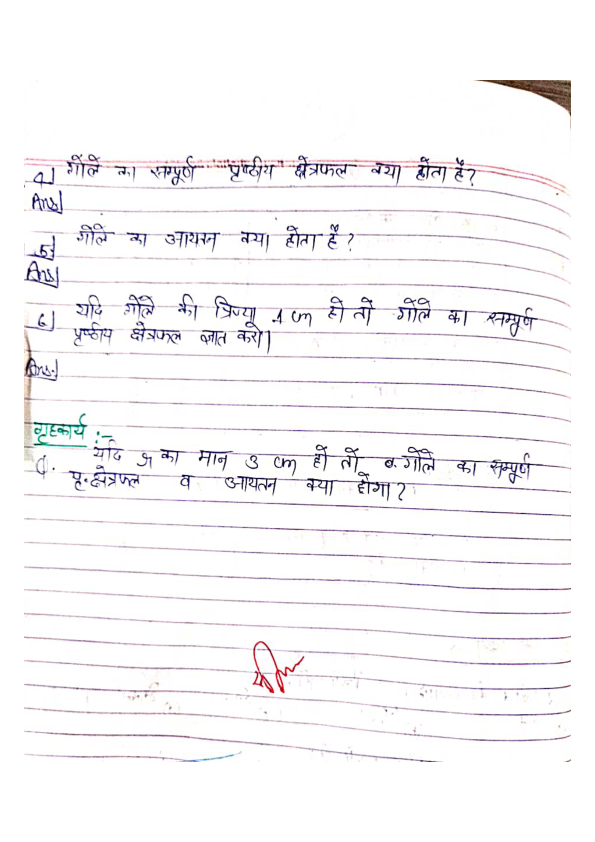 4] गोले का सम्पूर्ण पृष्ठीय क्षेत्रफल क्या होता है?
Ans]
5] गोले का आयतन क्या होता है?
Ans]
6] यदि गोले की त्रिज्या 1 cm हो तो गोले का सम्पूर्ण
पृष्ठीय क्षेत्रफल ज्ञात करो।
Ans.]
गृहकार्य :-
Q. यदि r का मान 3 cm हो तो गोले का सम्पूर्ण
पृ. क्षेत्रफल व आयतन क्या होगा?